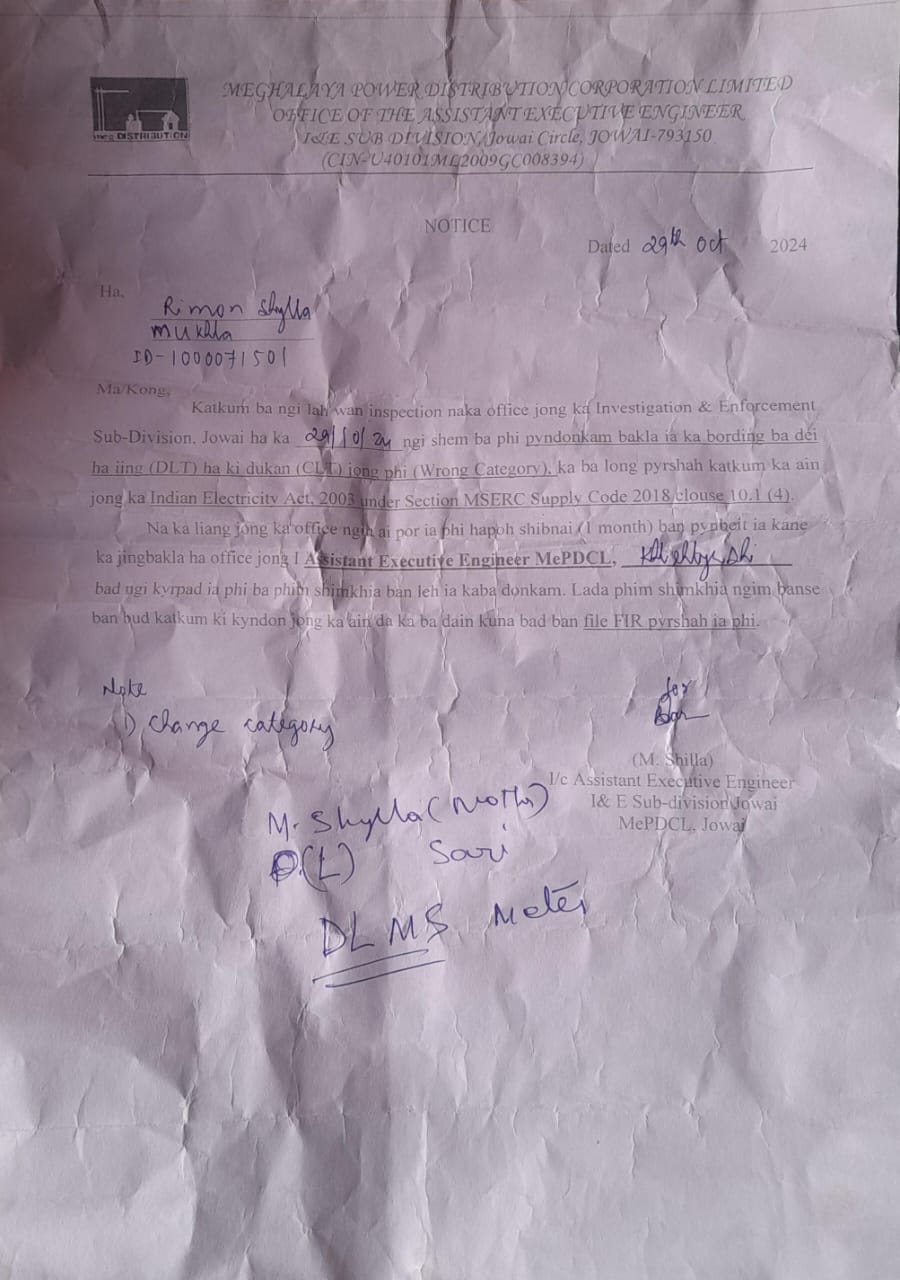 mepg DISTRIBUTION
MEGHALAYA POWER DISTRIBUTION CORPORATION LIMITED
OFFICE OF THE ASSISTANT EXECUTIVE ENGINEER
I&E SUB DIVISION, Jowai Circle, JOWAI-793150
(CIN-U40101ML2009GC008394)
NOTICE
Dated 29th Oct 2024
Ha,
Rimon Shylla
Mukhla
ID-1000071501
Ma/Kong,
Katkum ba ngi lah wan inspection naka office jong ka Investigation & Enforcement
Sub-Division, Jowai ha ka 29/10/24 ngi shem ba phi pyndonkam bakla ia ka bording ba dei
ha iing (DLT) ha ki dukan (CLT) jong phi (Wrong Category), ka ba long pyrshah katkum ka ain
jong ka Indian Electricity Act, 2003 under Section MSERC Supply Code 2018 clouse 10.1 (4).
Na ka liang jong ka office ngin ai por ia phi hapoh shibnai (1 month) ban pynbeit ia kane
ka jingbakla ha office jong I Assistant Executive Engineer MePDCL,
bad ngi kyrpad ia phi ba phin shimkhia ban leh ia kaba donkam. Lada phim shimkhia ngim banse
ban bud katkum ki kyndon jong ka ain da ka ba dain kuna bad ban file FIR pyrshah ia phi.
Note
1) Change category
for
(M. Shilla)
I/c Assistant Executive Engineer
I& E Sub-division Jowai
MePDCL, Jowai
M. Shylla
(L) Sari
DLMS Meter